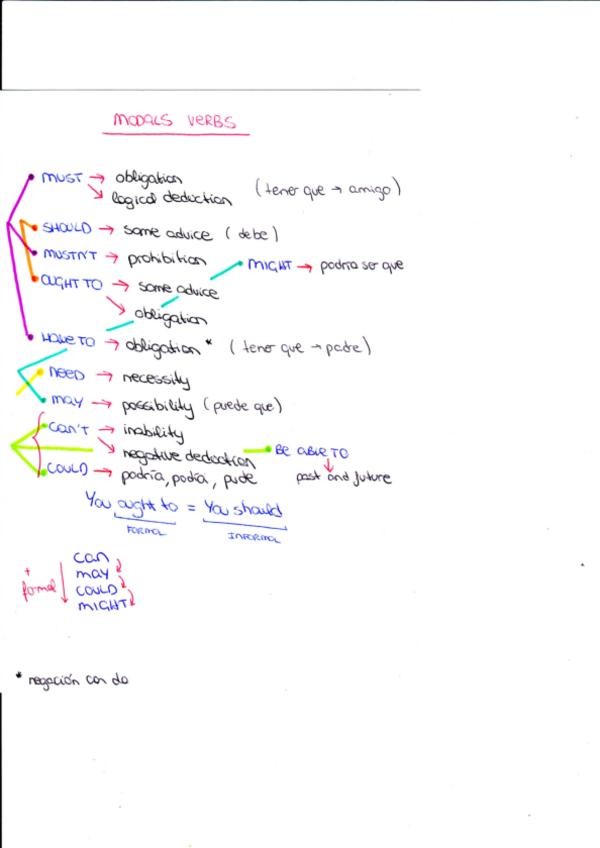 MODALS VERBS
MUST → obligation
↘ logical deduction (tener que → amigo)
SHOULD → some advice (debe)
MUSTN'T → prohibition
MIGHT → podría ser que
OUGHT TO → some advice
↘ obligation
HAVE TO → obligation * (tener que → padre)
NEED → necessity
MAY → possibility (puede que)
CAN'T → inability
↘ negative deduction
BE ABLE TO
↓
past and future
COULD → podría, podía, pude
You ought to = You should
FORMAL INFORMAL
+ formal
CAN
MAY
COULD
MIGHT
* negación con do